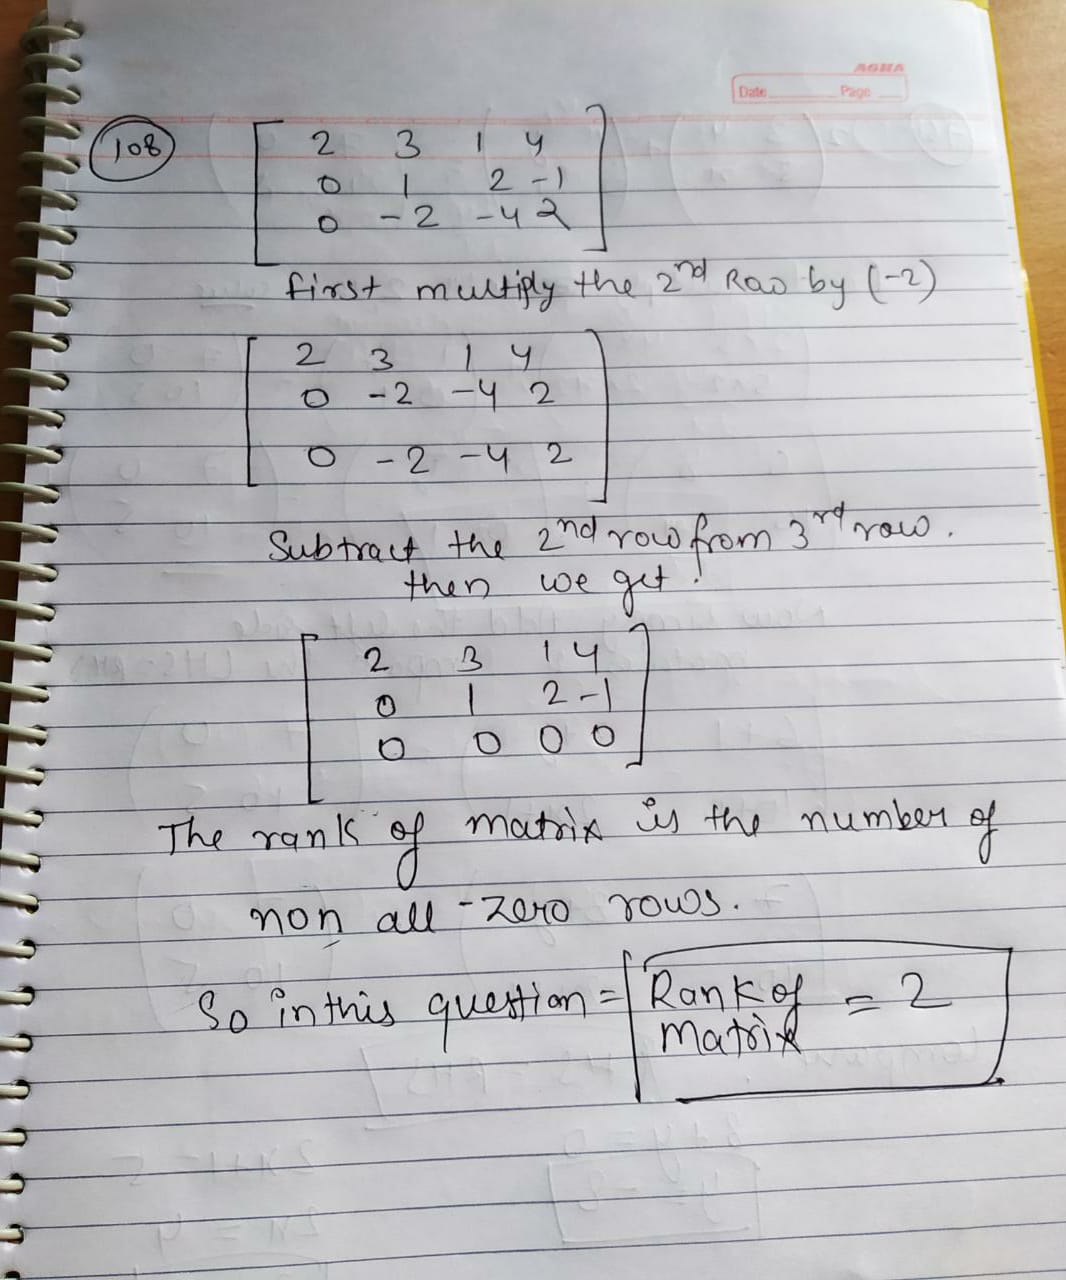 AGHA
Date Page
108
2 3 1 4
0 1 2 -1
0 -2 -4 2
first multiply the 2nd Row by (-2)
2 3 1 4
0 -2 -4 2
0 -2 -4 2
Subtract the 2nd row from 3rd row.
then we get!
2 3 1 4
0 1 2 -1
0 0 0 0
The rank of matrix is the number of
non all -zero rows.
So in this question = Rank of = 2
matrix